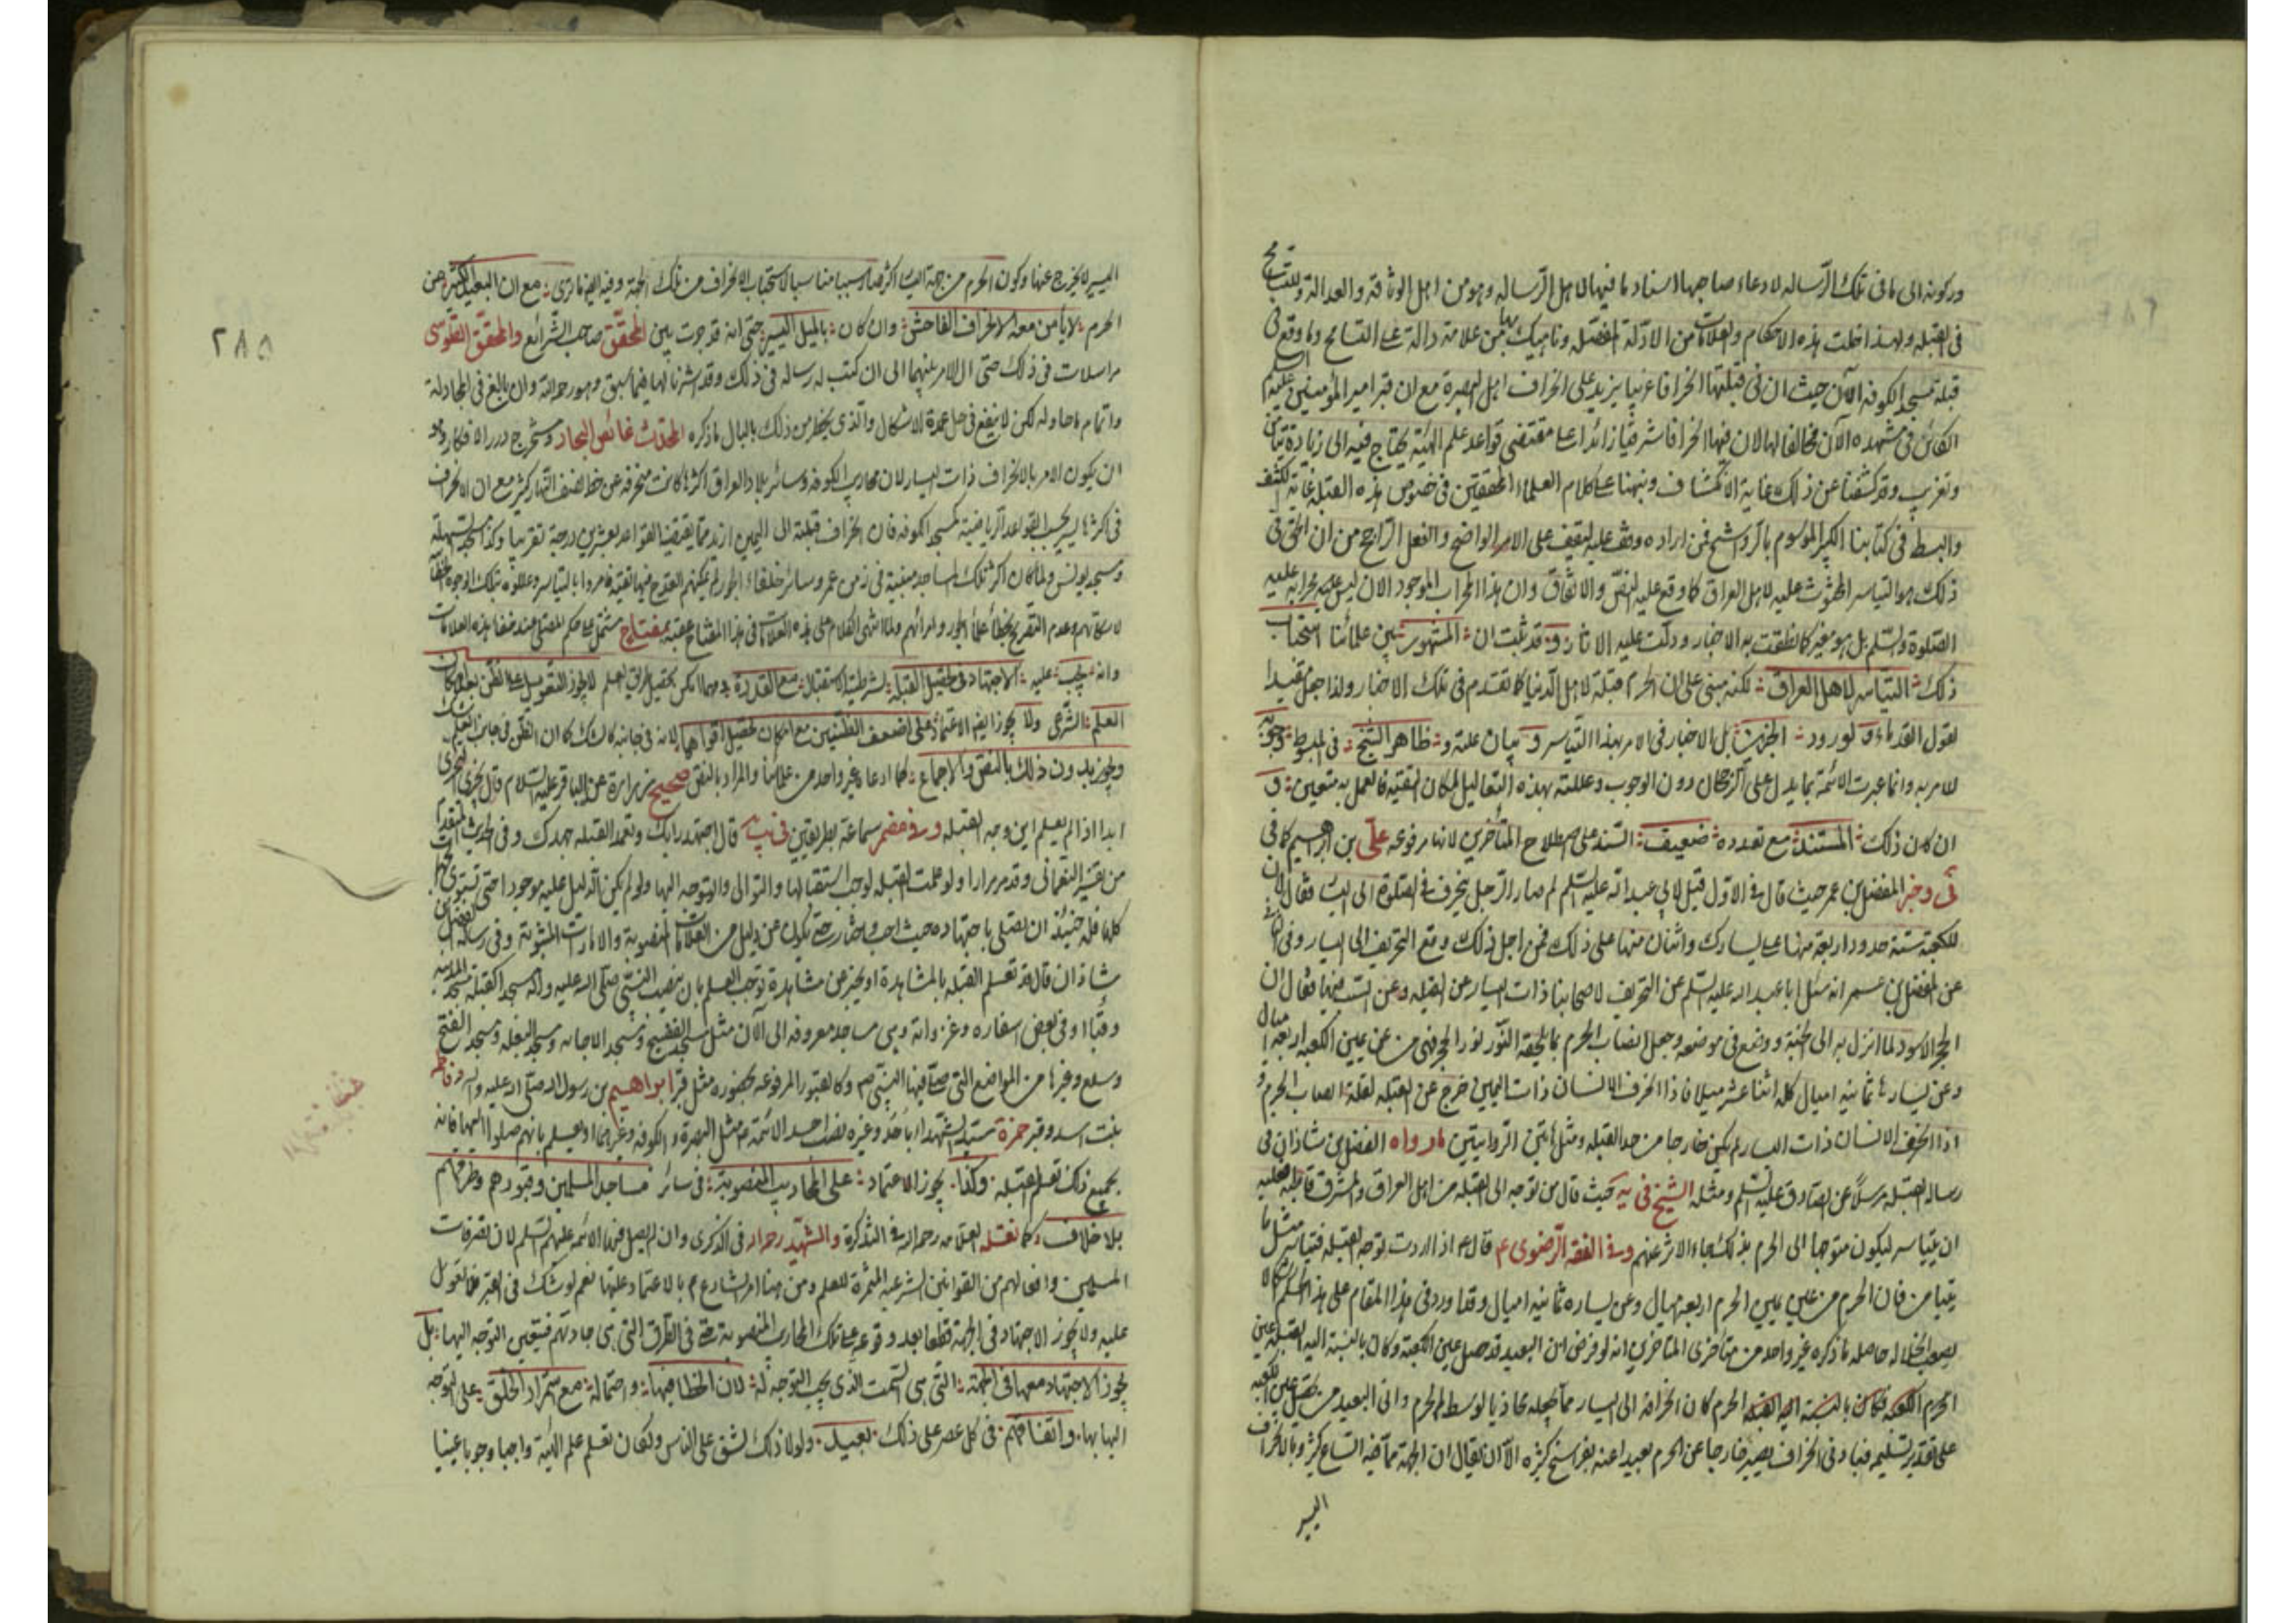 وركونه الى ما فى تلك الرساله لادعاء صاحبها اسناد ما فيها لاهل الرساله وهو من اهل الوثاقه والعدالة وللتسامح
فى القبله ولهذا خلت هذه الاحكام والعلامات من الادلة المفصله وناهيك بها من علامة دالة على التسامح وما وقع فى
قبلة مسجد الكوفه الآن حيث ان فى قبلتها انحرافا غربيا يزيد على انحراف اهل البصرة مع ان قبر امير المؤمنين عليه السلم
الكائن فى مشهده الآن مخالفا لها لان فيها انحرافا شرقيا زائدا على مقتضى قواعد علم الهيئة يحتاج فيه الى زيادة تيامن
وتغريب وقد كشفنا عن ذلك غاية الانكشاف ونبهنا على كلام العلماء المحققين فى خصوص هذه القبله غاية الكشف
والبسط فى كتابنا الكبير الموسوم بالرواشح فمن اراده وقف عليه ليقف على الامر الواضح والفعل الراجح من ان الحق فى
ذلك هو التياسر المحثوث عليه لاهل العراق كما وقع عليه النص والاتفاق وان هذا المحراب الموجود الان ليس هو محرابه عليه
الصلوة والسلم بل هو مغير كما نطقت به الاخبار ودلت عليه الاثار و قد ثبت ان المشهور بين علمائنا استحباب
ذلك التياسر لاهل العراق لكنه مبنى على ان الحرم قبلة لاهل الدنيا كما تقدم فى تلك الاخبار ولذا جعل مقيدا
لقول القدماء و لورود الخبرين بل الاخبار فى الامر بهذا التياسر و بيان علته و ظاهر الشيخ فى المبسوط وجوبه
للامر به وانما عبرت الائمة بما يدل على الرجحان دون الوجوب وعللته بهذه التعاليل لمكان التقية فالعمل به متعين و
ان كان ذلك المستند مع تعدده ضعيف السند على اصطلاح المتأخرين لانها مرفوعه على بن ابراهيم كما فى
فى وخبر المفضل بن عمر حيث قال فى الاول قيل لابى عبد الله عليه السلم لم صار الرجل ينحرف فى الصلوة الى اليسار فقال لان
للكعبة ستة حدود اربعة منها على يسارك واثنان منها على ذلك فمن اجل ذلك وقع التحريف الى اليسار وفى الثانى
عن المفضل بن عمر انه سئل ابا عبد الله عليه السلم عن التحريف لاصحابنا ذات اليسار عن القبله وعن السبب فيهما فقال ان
الحجر الاسود لما انزل به الى الجنة ووضع فى موضعه وجعل انصاب الحرم بما يلحقه النور نور الحجر فهى من عن يمين الكعبه اربعة اميال
وعن يسارها ثمانيه اميال كله اثنا عشر ميلا فاذا انحرف الانسان ذات اليمين خرج عن القبله لقلة انصاب الحرم و
اذا انحرف الانسان ذات اليسار لم يكن خارجا من حد القبله ومثل هاتين الروايتين ما رواه الفضل بن شاذان فى
رساله القبله مرسلا عن الصادق عليه السلم ومثله الشيخ فى يه حيث قال من توجه الى القبله من اهل العراق والمشرق قاطبة فعليه
ان يتياسر ليكون متوجها الى الحرم بذلك جاء الاثر عنهم وفى الفقه الرضوى ع قال ع اذا اردت توجه القبله فتياسر مثل ما
تتيامن فان الحرم من عن يمين الحرم اربعه اميال وعن يساره ثمانيه اميال وقد اورد فى هذا المقام على هذا الحكم اشكالا
يصعب انحلاله حاصله ما ذكره غير واحد من متأخرى المتأخرين انه لو فرض ان البعيد قد حصل عين الكعبة وكان بالنسبة اليه القبله عين
الحرم كان انحرافه الى اليسار مما يجعله محاذيا لوسط الحرم وانى البعيد من تحصيل عين الكعبه
على تقدير تسليمه فبادنى انحراف يصير خارجا عن الحرم بعيدا عنه بفراسخ كثيره الا ان يقال ان الجهة مما فيه اتساع كثير وبالانحراف
اليسير
٢٨٥
اليسير لا يخرج عنها وكون الحرم من جهة اليسار اكثر صار سببا مناسبا لاستحباب الانحراف من تلك الجهة وفيه ايضا ما ترى مع ان البعيد الكثير عن
الحرم لا يأمن معه الانحراف الفاحش وان كان بالميل اليسير حتى انه قد جرت بين المحقق صاحب الشرائع والمحقق الطوسى
مراسلات فى ذلك حتى ال الامر بينهما الى ان كتب له رساله فى ذلك وقد اشرنا لها فيما سبق وهو رحمه الله وان بالغ فى المجادلة
واتمام ما حاوله لكن لا ينفع فى حل عمدة الاشكال والذى يخطر من ذلك بالبال ما ذكره المحدث غائص البحار ومستخرج درر الافكار وهو
ان يكون الامر بالانحراف ذات اليسار لان محاريب الكوفه وسائر بلاد العراق اكثرها كانت منحرفه عن خط نصف النهار كثيرا مع ان الانحراف
فى اكثرها يسير بحسب القواعد الرياضية كمسجد الكوفه فان انحراف قبلته الى اليمين ازيد مما يقتضيه القواعد بعشرين درجة تقريبا وكذا مسجد السهله
ومسجد يونس ولما كان اكثر تلك المساجد مبنية فى زمن عمر وسائر خلفاء الجور لم يمكنهم القدح فيها تقية فامروا بالتياسر وعللوه بتلك الوجوه الخفية
لاسكاتهم وعدم التصريح بخطأ خلفاء الجور وامرائهم ولما انتهى الكلام على هذه العلامات فى هذا المفتاح عقبه بمفتاح مشتمل على حكم المصلى عند خفاء هذه العلامات
وانه يجب عليه الاجتهاد فى تحصيل القبلة لشرطية الاستقبال مع القدرة ومهما امكن تحصيل طريق العلم لا يجوز التعويل على الظن بعد امكان
العلم الشرعى ولا يجوز ايضا الاعتماد على اضعف الظنين مع امكان تحصيل اقواهما لانه فى جانبه كالشك كما ان الظن فى جانب العلم شك
ويجوز بدون ذلك بالنص والاجماع كما ادعاه غير واحد من علمائنا والمراد بالنص صحيح زرارة عن الباقر عليه السلام قال يجزى التحرى
ابدا اذا لم يعلم اين وجه القبله وفى مضمر سماعة بطريقين فى يب قال اجتهد رايك وتعمد القبله جهدك وفى الحديث المتقدم
من تفسير النعمانى وقد مر مرارا ولو علمت القبله لوجب استقبالها والتوالى والتوجه اليها ولو لم يكن الدليل عليه موجودا حتى تستوى الجهات
كلها فله حينئذ ان يصلى باجتهاده حيث احب واختار حتى يكون من دليل من العلامات المنصوبة والامارات المثبوتة وفى رساله الفضل بن
شاذان قال قد تعلم القبله بالمشاهدة او بخبر عن مشاهدة توجب العلم بان نصب النبى صلى الله عليه واله مسجدا كقبلة مسجد المدينه
وقباء او فى بعض اسفاره وغزواته وهى مساجد معروفه الى الآن مثل مسجد الفضيخ ومسجد الاجابه ومسجد البغله ومسجد الفتح
وسلع وغيرها من المواضع التى صلى فيها النبى ص وكالقبور المرفوعه بحضوره مثل قبر ابراهيم بن رسول الله صلى الله عليه واله وفاطمه
بنت اسد وقبر حمزة سيد الشهداء باحد وغيره بنصب احد الائمه ع مثل البصرة والكوفه وغيرهما او يعلم بانهم صلوا اليها فانه
بجميع ذلك تعلم القبله وكذا يجوز الاعتماد على المحاريب المنصوبة فى سائر مساجد المسلمين وقبورهم وطرقهم
بلا خلاف كما نقله العلامه رحمه الله فى التذكرة والشهيد رحمه الله فى الذكرى وان لم يصل فيها الائمه عليهم السلم لان تصرفات
المسلمين وافعالهم من القوانين الشرعيه المثمرة للعلم ومن هنا امر الشارع ع بالاعتماد عليها نعم لو شك فى القبر فلا تعويل
عليه ولا يجوز الاجتهاد فى الجهة قطعا بعد وقوعه على تلك المحاريب المنصوبة حتى فى الطرق التى هى جادتهم فيتعين التوجه اليها بل
يجوز الاجتهاد معها فى الجهة التى هى السمت الذى يجب التوجه له لان الخطا فيها و احتماله مع استمرار الخلق على التوجه
اليها بها واتفاقهم فى كل عصر على ذلك بعيد ولولا ذلك لشق على الناس ولكان تعلم علم الهيئة واجبا وجوبا عينيا